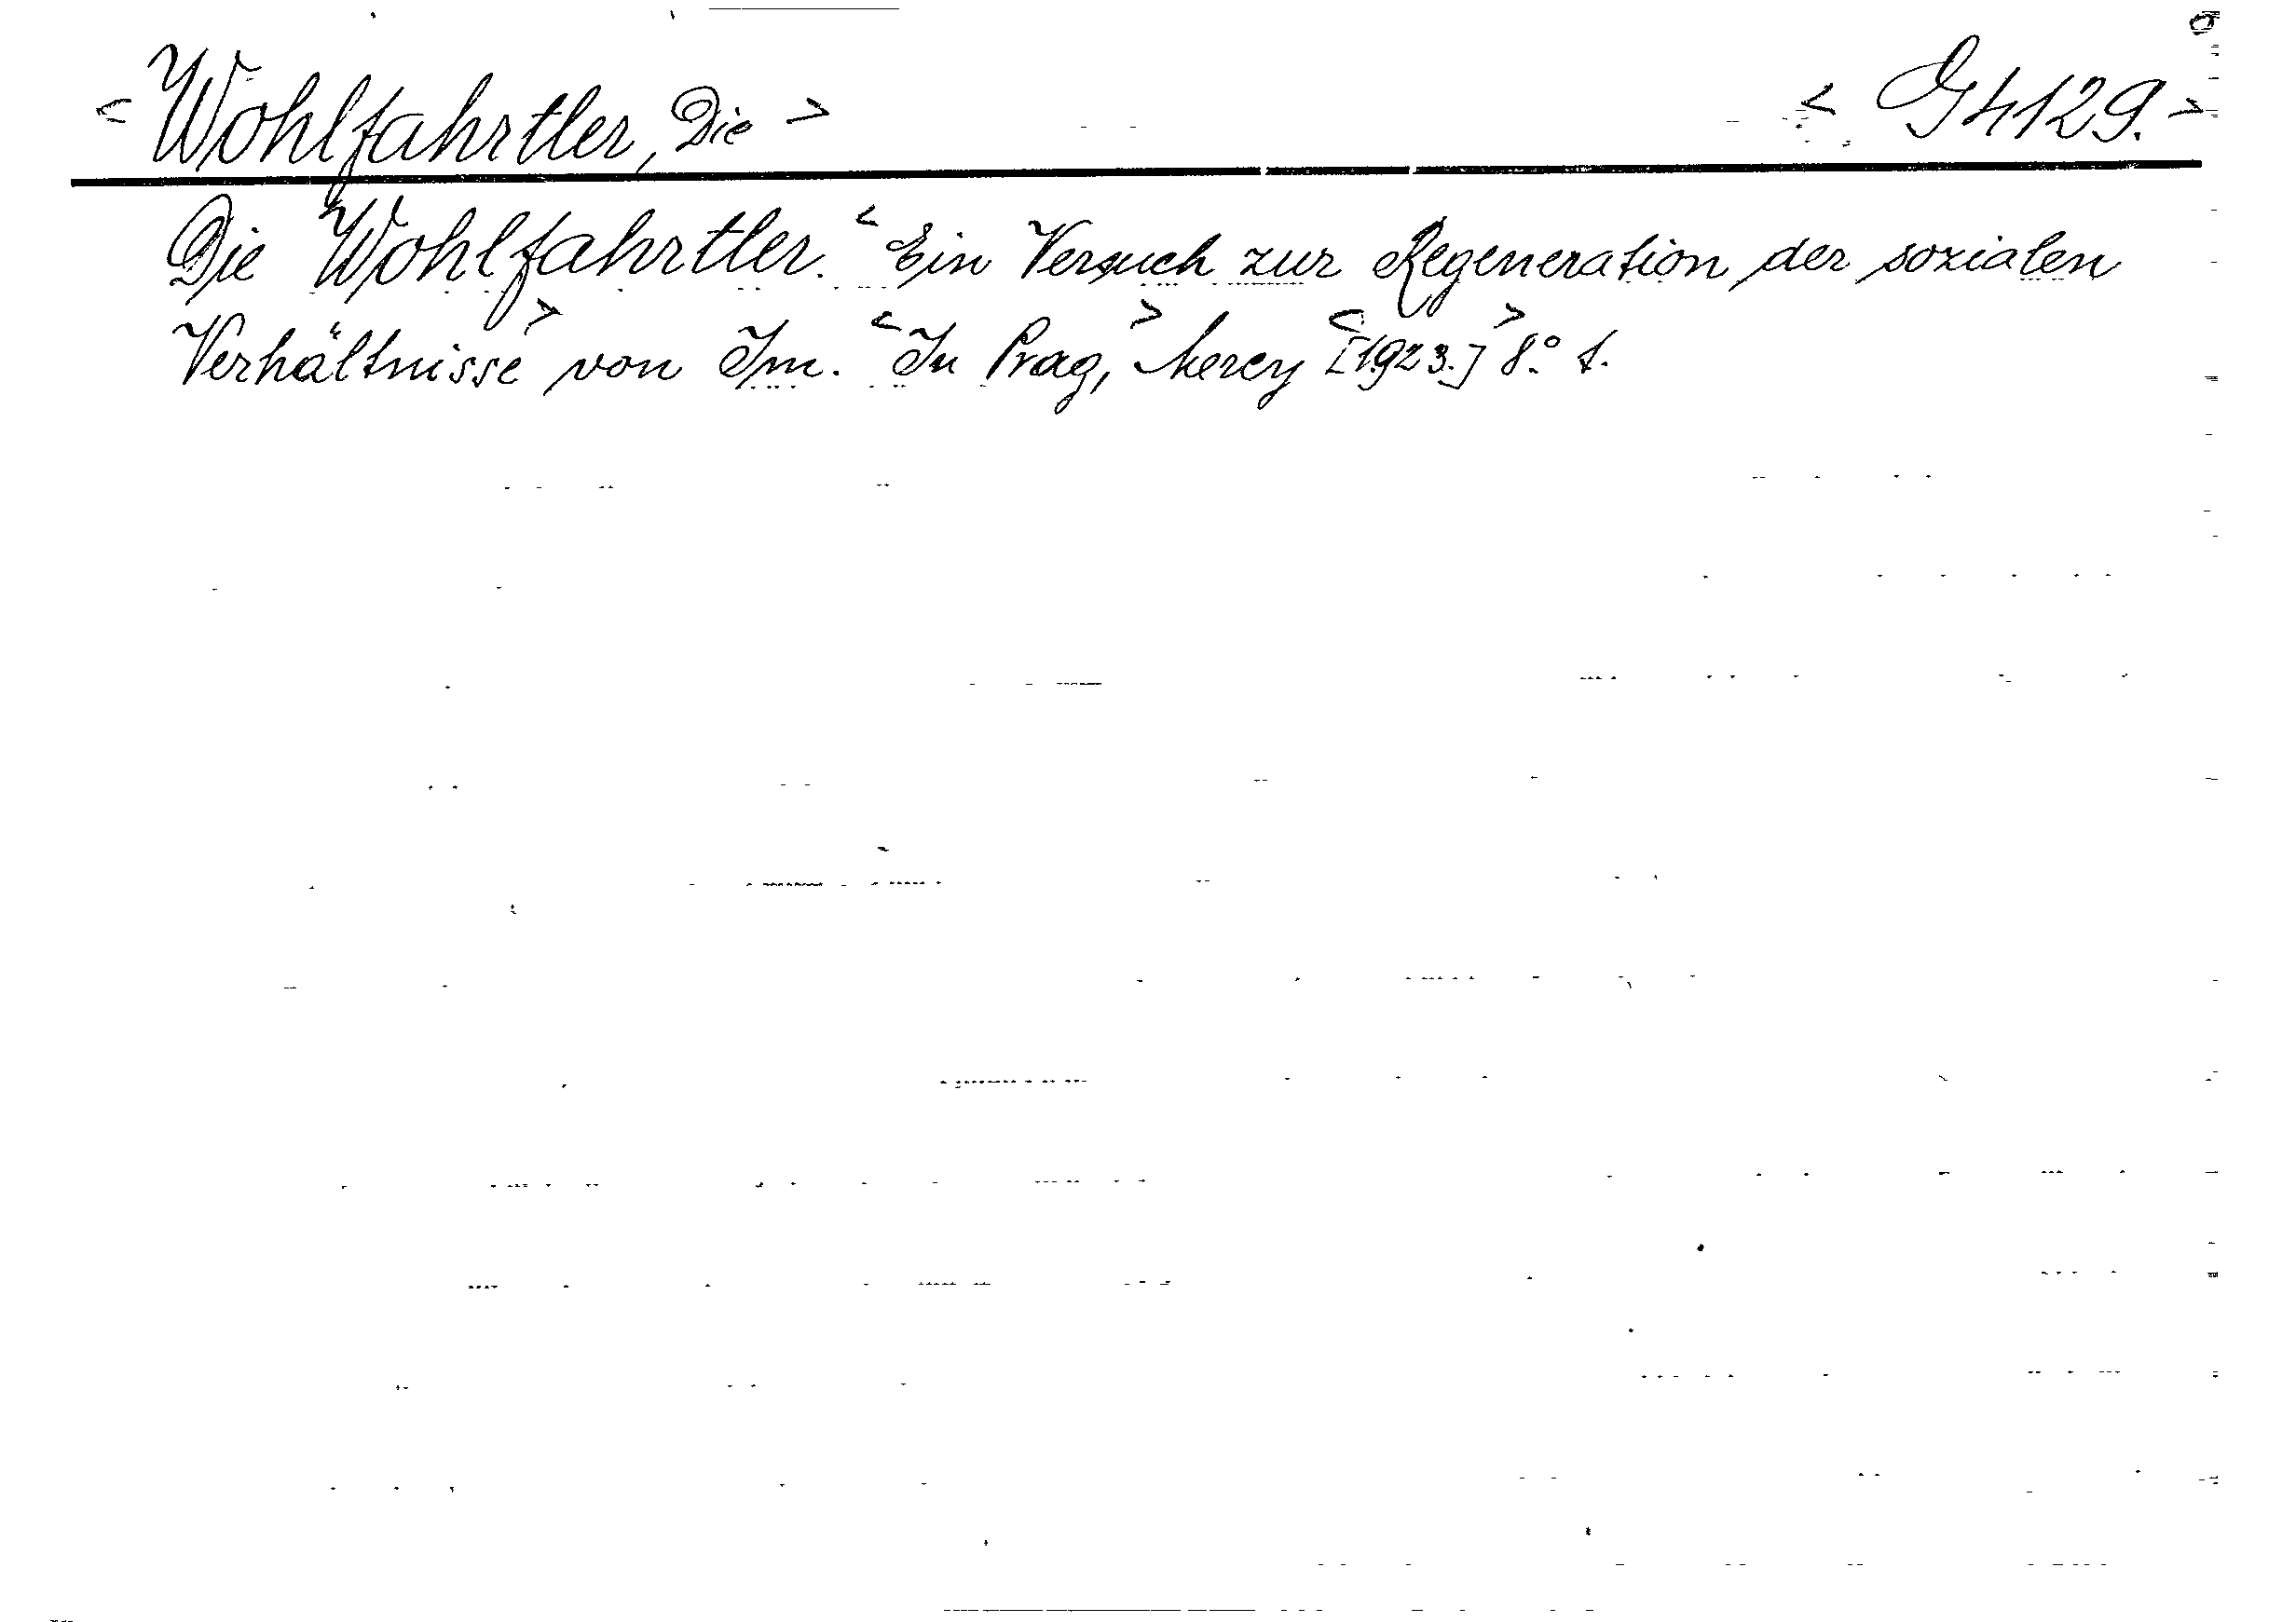 < Wohlfahrtler, Die > < G 4129. >
Die Wohlfahrtler. < Ein Versuch zur Regeneration der sozialen
Verhältnisse > von Im. < In Prag, > Mercy < [1923.] > 8.° 1.